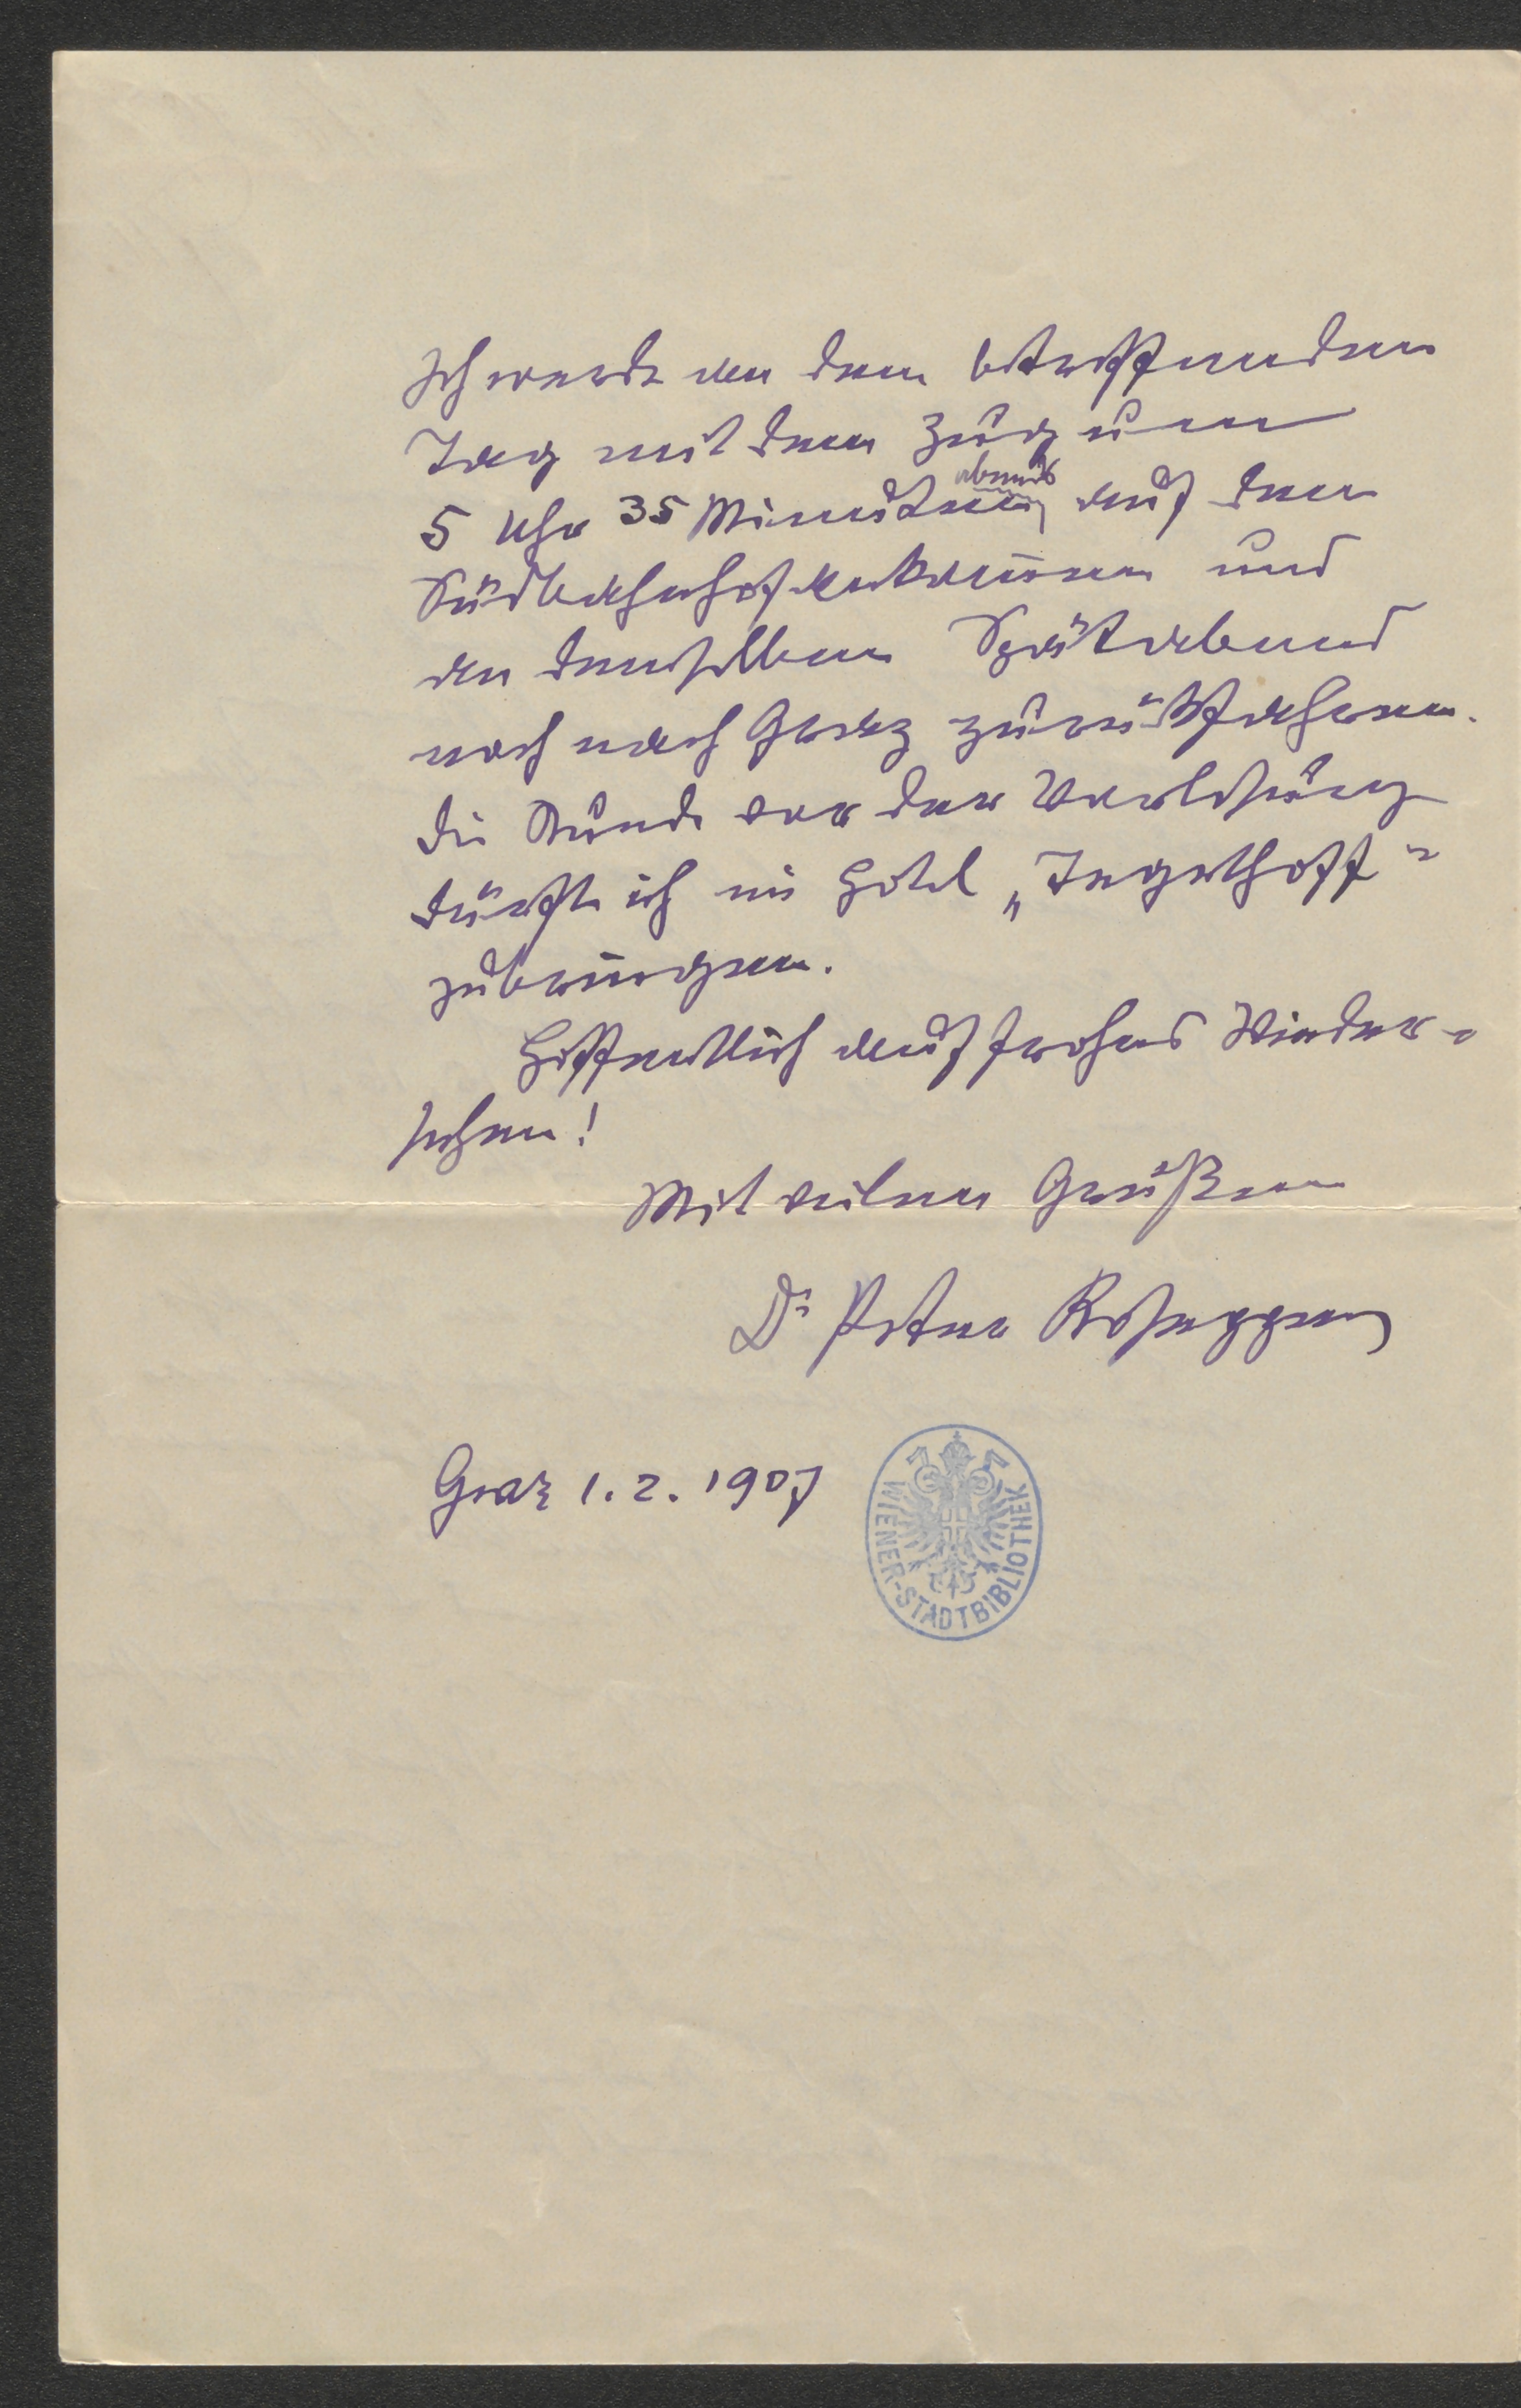 Ich werde an dem betreffenden
Tag mit dem Zug um
5 Uhr 35 Minuten abends auf dem
Südbahnhof ankom̅en und
an demselben Spätabend
noch nach Graz zurückfahren.
Die Stunde vor der Vorlesung
dürfte ich im Hotel „Tegetthoff“
zubringen.
Hoffentlich auf frohes Wieder-
sehen!
Mit vielen Grüßen
Dr Peter Rosegger
Graz 1. 2. 1907
WIENER-STADTBIBLIOTHEK